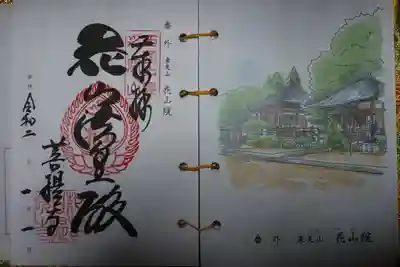 番外 東光山 花山院
奉拝
花山法皇殿
菩提寺
令和二
一
一
番外 東光山 花山院